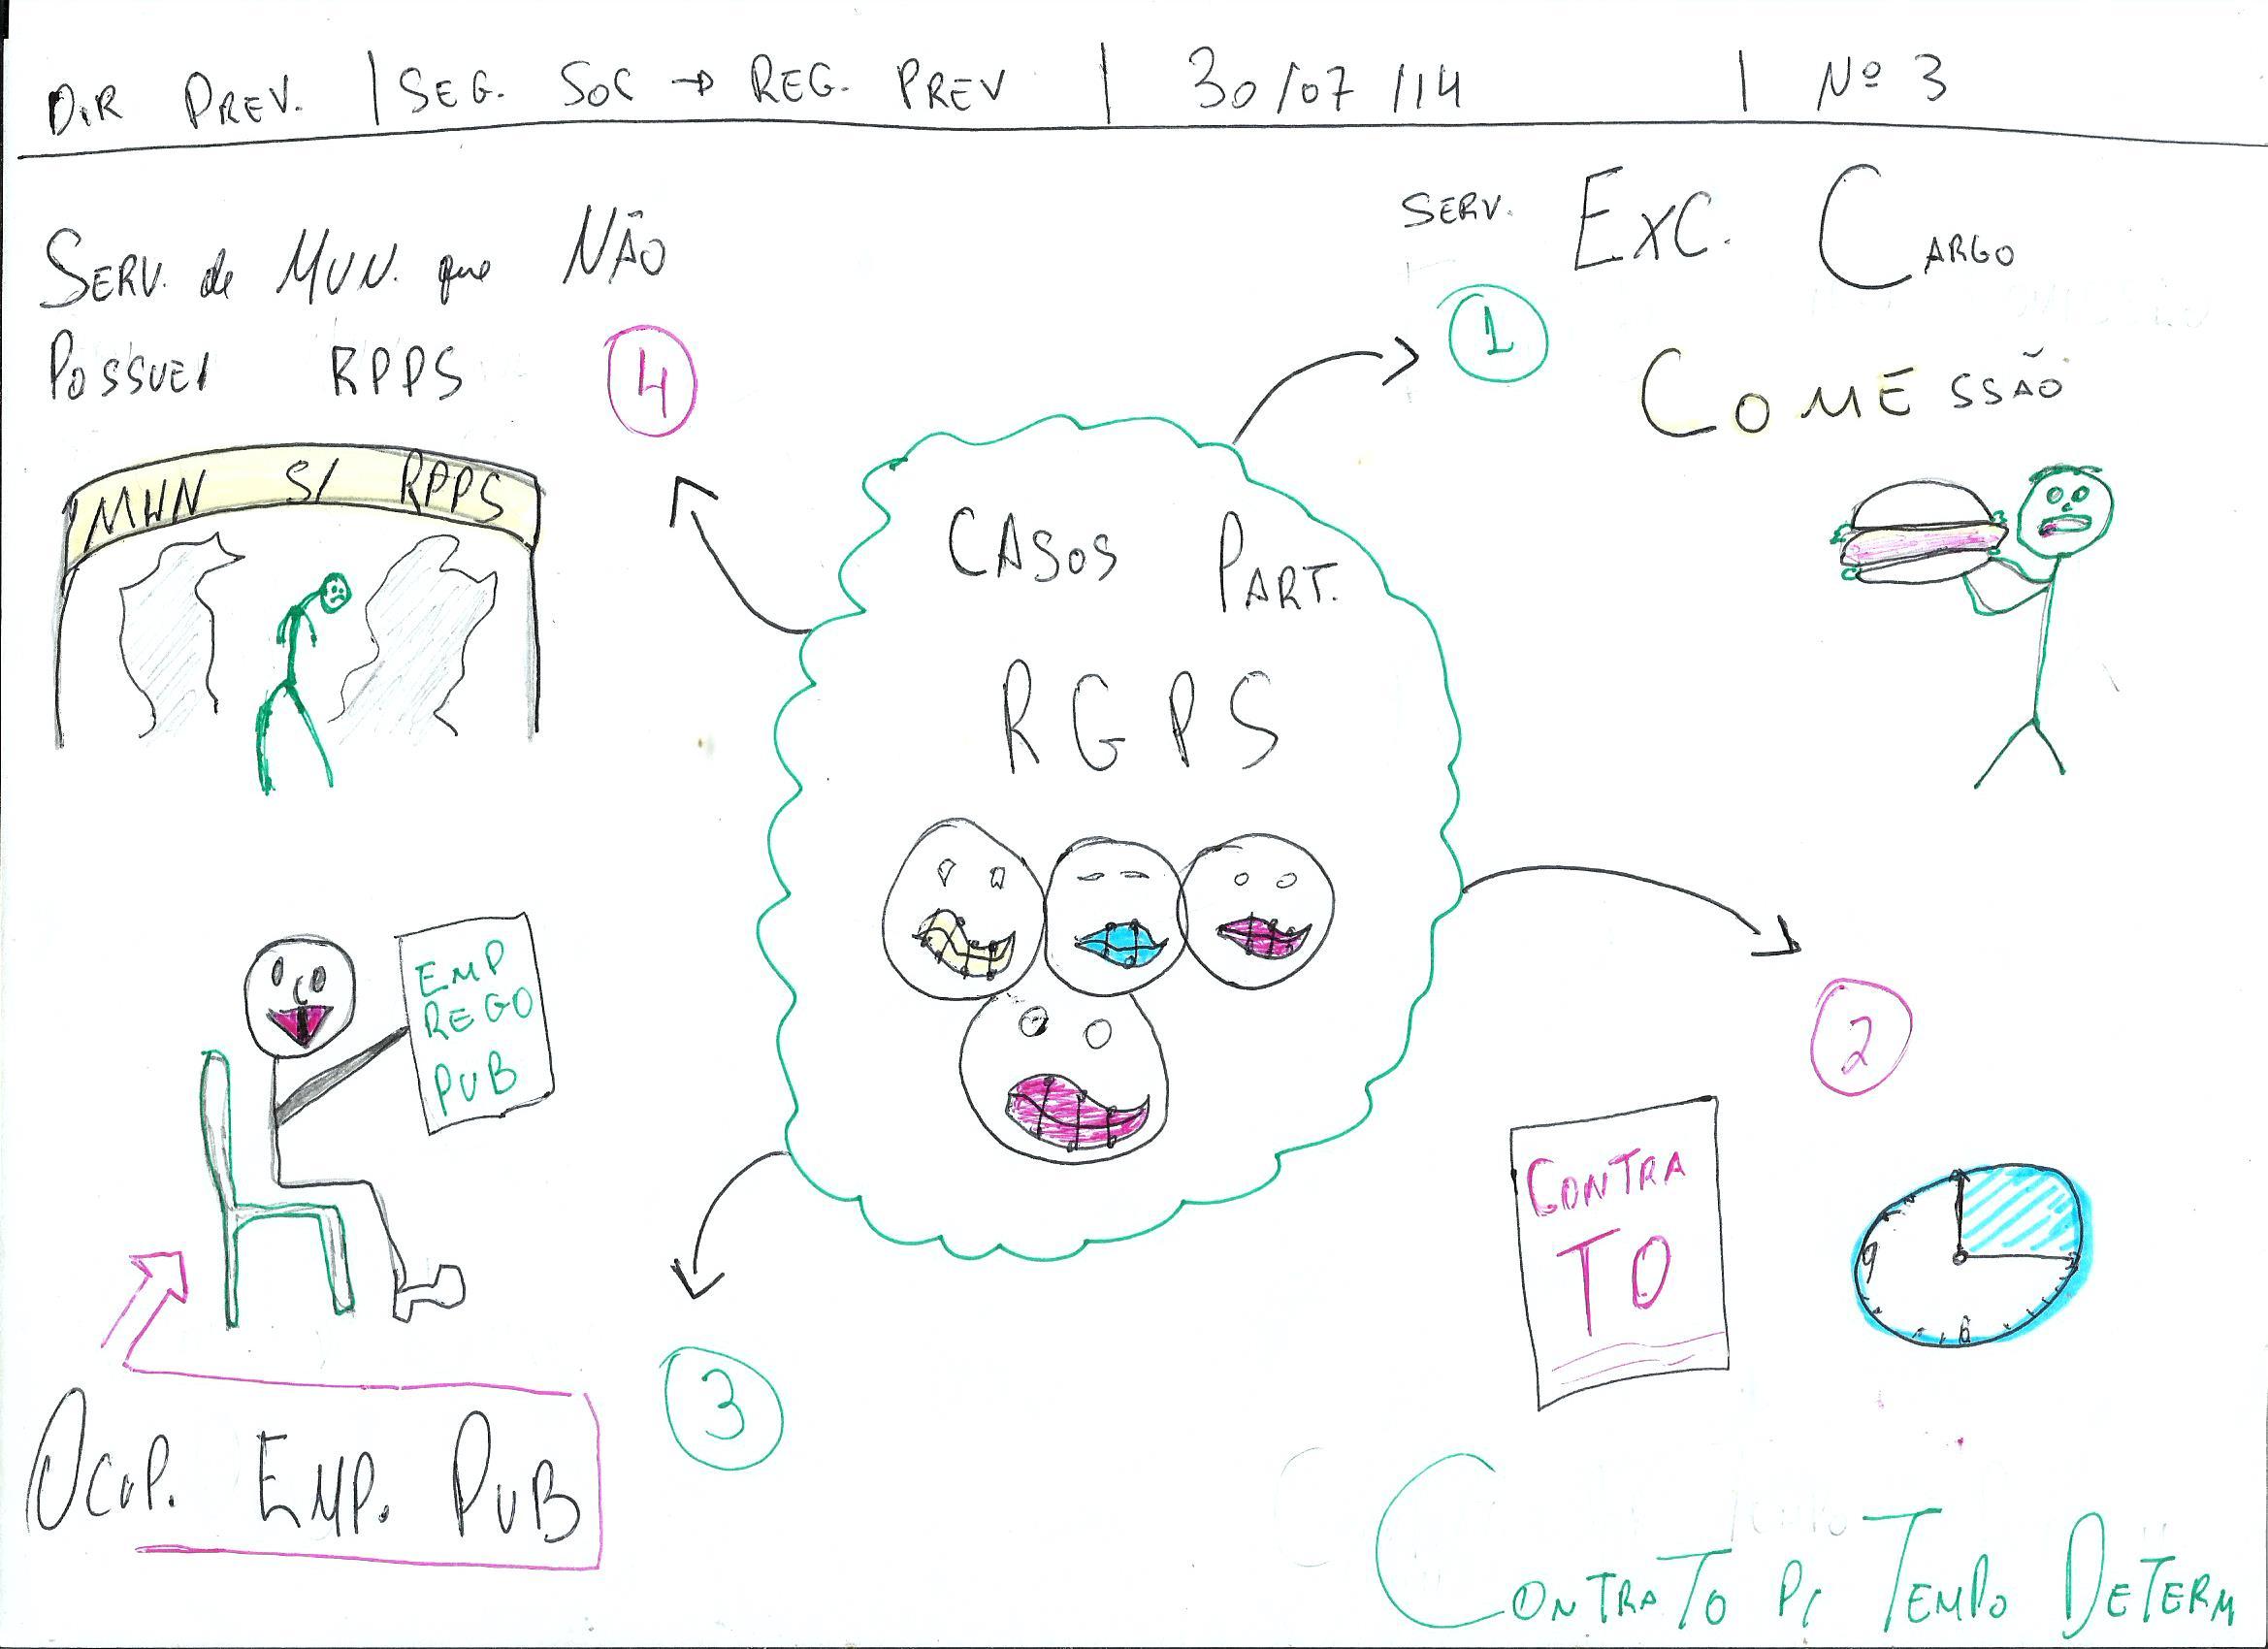 DIR PREV. | SEG. SOC → REG. PREV | 30/07/14 | Nº 3
SERV. EXC. CARGO
1
COMESSÃO
SERV. de MUN. que NÃO
POSSUEI RPPS
4
MUN S/ RPPS
CASOS PART.
RGPS
2
CONTRA
TO
9
6
CONTRATO P/ TEMPO DETERM
EMP
REGO
PUB
3
OCUP. EMP. PUB